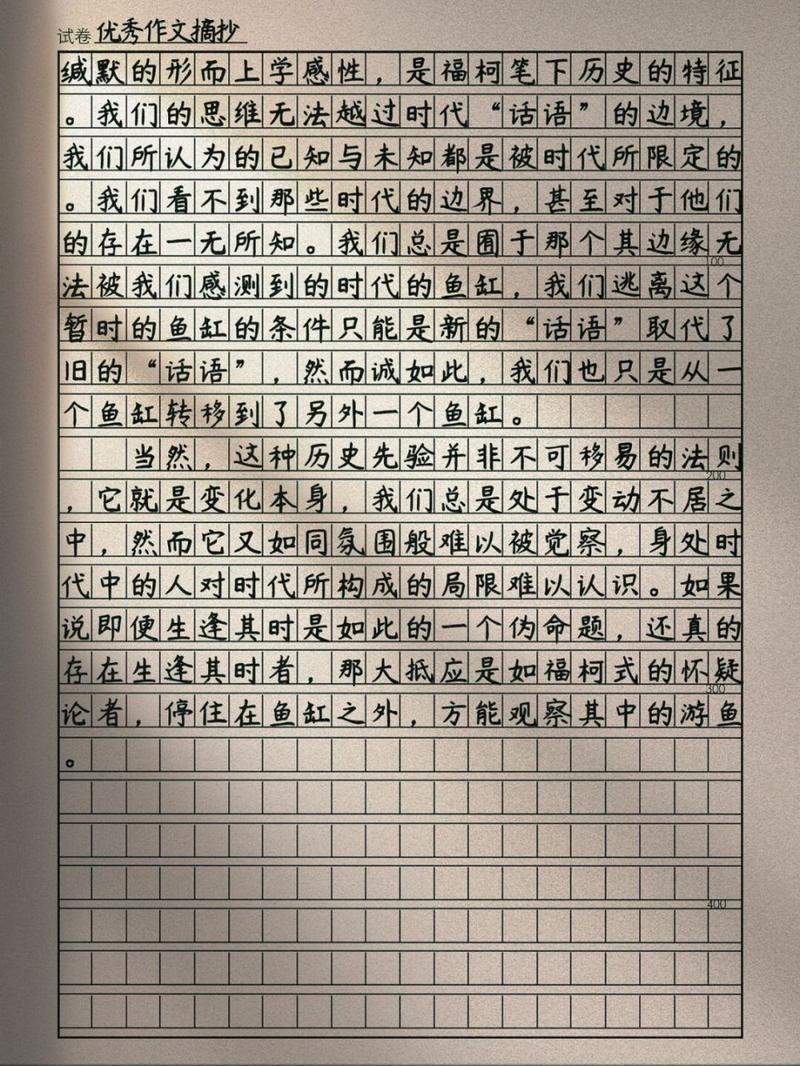 试卷 优秀作文摘抄
缄默的形而上学感性，是福柯笔下历史的特征
。我们的思维无法越过时代“话语”的边境，
我们所认为的已知与未知都是被时代所限定的
。我们看不到那些时代的边界，甚至对于他们
的存在一无所知。我们总是囿于那个其边缘无
100
法被我们感测到的时代的鱼缸，我们逃离这个
暂时的鱼缸的条件只能是新的“话语”取代了
旧的“话语”，然而诚如此，我们也只是从一
个鱼缸转移到了另外一个鱼缸。
当然，这种历史先验并非不可移易的法则
200
，它就是变化本身，我们总是处于变动不居之
中，然而它又如同氛围般难以被觉察，身处时
代中的人对时代所构成的局限难以认识。如果
说即便生逢其时是如此的一个伪命题，还真的
存在生逢其时者，那大抵应是如福柯式的怀疑
300
论者，停住在鱼缸之外，方能观察其中的游鱼
。
400